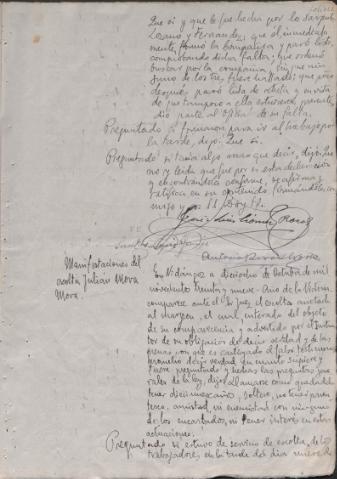 Que si y que le fue hecha por los sargentos
Lozano y Fernandez, que el inmediata
mente, formó la compañia y pasó lista
comprobando dicha falta; que ordenó
buscar por la compañia sin que nin
guno de los tres, fuese hallado; que poco
despues pasó lista de retreta y en vista
de que tampoco a ella estuvieron presentes
dió parte al Oficial de su falta.
Preguntado si formaron para ir al trabajo por
la tarde, dijo: Que si.
Preguntado si tenia algo mas que decir, dijo: Que
no y leida que fue por si esta declaracion
y encontrandola conforme, se afirma y
ratifica en su contenido firmandola con
migo y S.S. Doy fé.
Manifestaciones del
escolta Julian Mora
Mora.
En Vidángoz a dieciocho de Octubre de mil
novecientos treinta y nueve. Año de la Victoria.
comparece ante el Sr. Juez el escolta anotado
al margen, el cual, enterado del objeto
de su comparecencia y advertido por el Instruc
tor de su obligacion de decir verdad y de las
penas con que es castigado el falso testimonio
prometió decir verdad en cuanto supiere y
fuere preguntado y hechas las preguntas gene
rales de la ley, dijo: Llamarse como queda dicho
tener diecinueve años, soltero, no tener paren
tesco, amistad, ni enemistad con ninguno
de los encartados, ni tener interés en estas
actuaciones.
Preguntado si estuvo de servicio de escolta, de los
trabajadores, en la tarde del dia nueve de